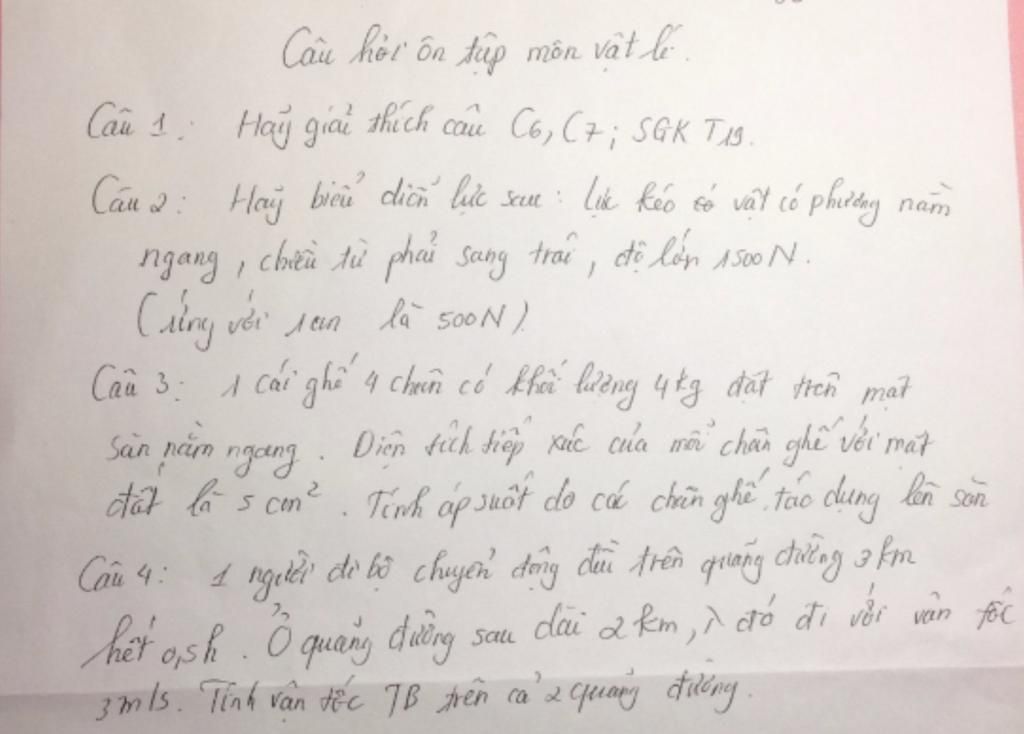 Câu hỏi ôn tập môn vật lí.
Câu 1: Hãy giải thích câu C6, C7; SGK T19.
Câu 2: Hãy biểu diễn lực sau: lực kéo có vật có phương nằm
ngang, chiều từ phải sang trái, độ lớn 1500N.
(ứng với 1cm là 500N)
Câu 3: 1 cái ghế 4 chân có khối lượng 4kg đặt trên mặt
sàn nằm ngang. Diện tích tiếp xúc của mỗi chân ghế với mặt
đất là 5 cm². Tính áp suất do các chân ghế tác dụng lên sàn
Câu 4: 1 người đi bộ chuyển động đều trên quãng đường 3km
hết 0,5h. Ở quãng đường sau dài 2km, đó đi với vân tốc
3m/s. Tính vận tốc TB trên cả 2 quãng đường.